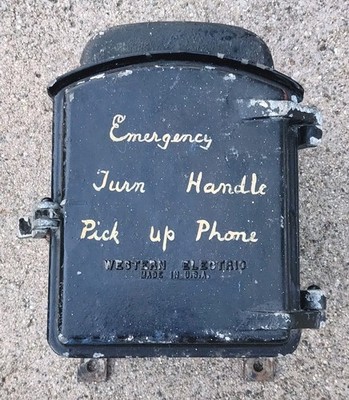 Emergency
Turn Handle
Pick up Phone
WESTERN ELECTRIC
MADE IN U.S.A.